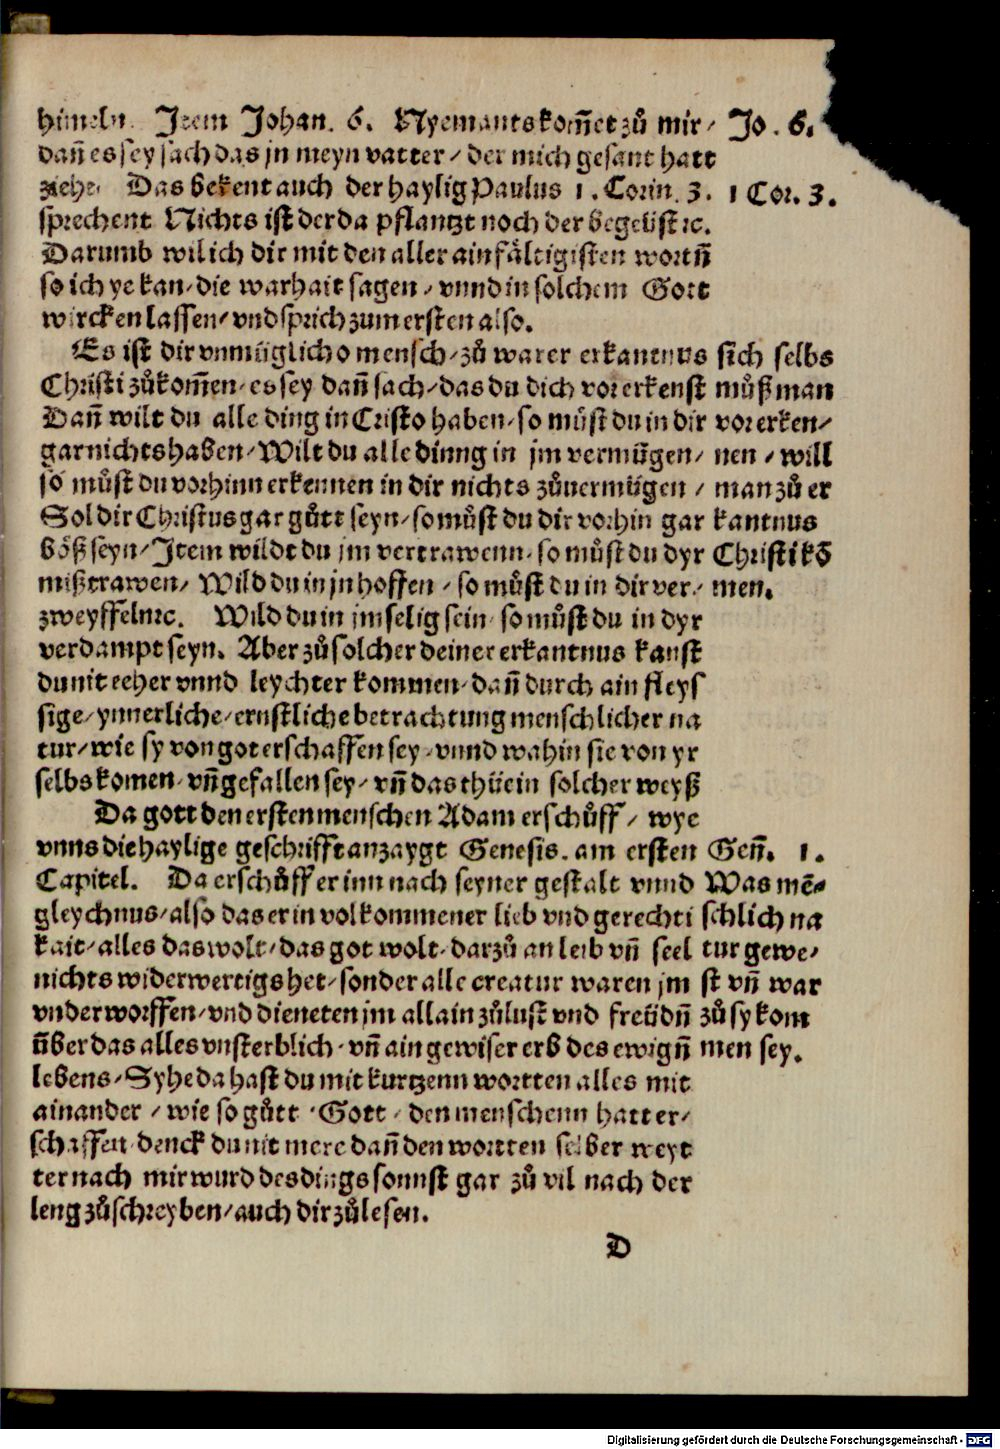 himeln. Item Johan. 6. Nyemants kom̃et zů mir/
dañ es sey sach das jn meyn vatter/ der mich gesant hatt
ziehe. Das bekent auch der haylig Paulus 1. Corin. 3.
sprechent Nichts ist der da pflantzt noch der begeüst ꝛc.
Darumb wil ich dir mit den aller ainfältigisten wortñ
so ich ye kan/ die warhait sagen/ vnnd in solchem Gott
wircken lassen/ vnd sprich zum ersten also.
Es ist dir vnmüglich o mensch/ zů warer erkantnus
Christi zůkom̃en/ es sey dañ sach/ das du dich vor erkenst
Dañ wilt du alle ding in Cristo haben/ so můst du in dir
gar nichts haben/ Wilt du alle dinng in jm vermügen/
so můst du vorhinn erkennen in dir nichts zůuermügen/
Sol dir Christus gar gůtt seyn/ so můst du dir vorhin gar
böß seyn/ Item wildt du jm vertrawenn/ so můst du dyr
mißtrawen/ Wild du in jn hoffen/ so můst du in dir ver/
zweyffeln ꝛc. Wild du in jm selig sein/ so můst du in dyr
verdampt seyn. Aber zů solcher deiner erkantnus kanst
du nit eeher vnnd leychter kommen/ dañ durch ain fleys
sige/ ynnerliche/ ernstliche betrachtung menschlicher na
tur/ wie sy von got erschaffen sey/ vnnd wahin sie von yr
selbs komen/ vñ gefallen sey/ vñ das thů ein solcher weyß
Da gott den ersten menschen Adam erschůff/ wye
vnns die haylige geschrifft anzaygt Genesis. am ersten
Capitel. Da erschůff er inn nach seyner gestalt vnnd
gleychnus/ also das er in volkommener lieb vnd gerechti
kait/ alles das wolt/ das got wolt/ darzů an leib vñ seel
nichts widerwertigs het/ sonder alle creatur waren jm
vnderworffen/ vnd dieneten jm allain zů lust vnd freüdñ
ñber das alles vnsterblich/ vñ ain gewiser erb des ewigñ
lebens/ Syhe da hast du mit kurtzenn wortten alles mit
ainander/ wie so gůtt Gott/ den menschenn hatt er/
schaffen/ denck du nit mere dañ den wortten selber weyt
ter nach mir wurd des dings sonnst gar zů vil nach der
leng zůschreyben/ auch dir zůlesen.
D
Jo. 6.
1 Cor. 3.
sich selbs
můß man
vor erken/
nen/ will
man zů er
kantnus
Christi kõ
men.
Geñ. 1.
Was mẽ/
schlich na
tur gewe/
st vñ war
zů sy kom
men sey.
Digitalisierung gefördert durch die Deutsche Forschungsgemeinschaft - DFG